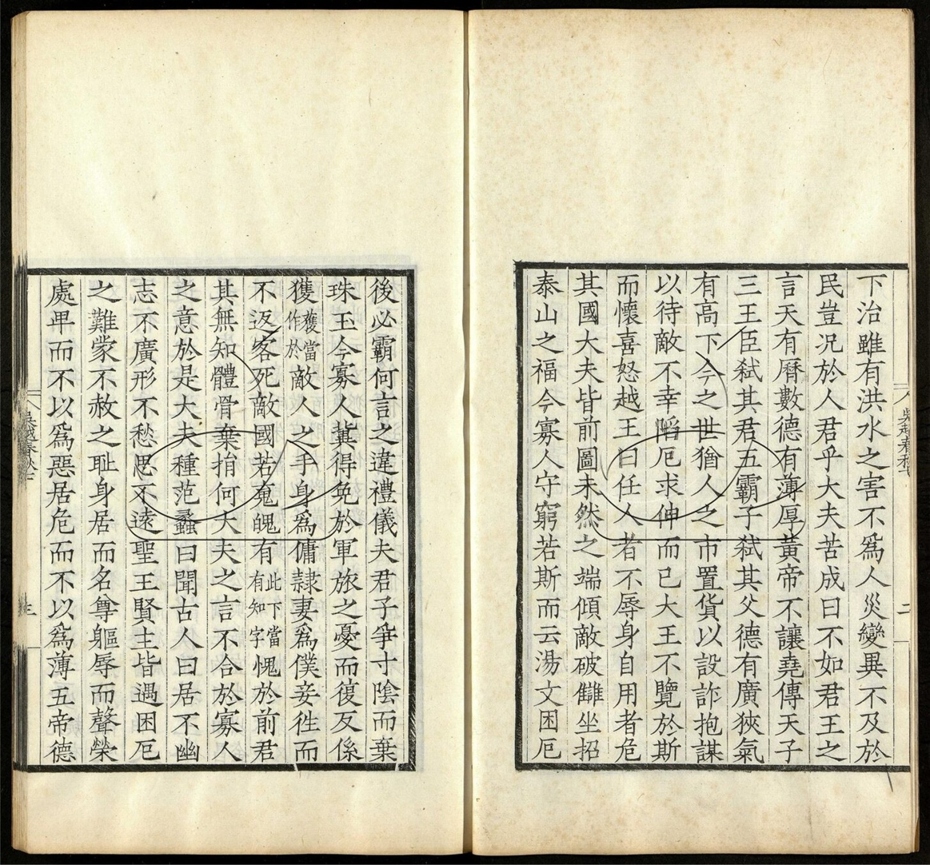 下治雖有洪水之害不爲人災變異不及於
民豈况於人君乎大夫苦成曰不如君王之
言天有曆數德有薄厚黃帝不讓堯傳天子
三王臣弑其君五霸子弑其父德有廣狹氣
有高下今之世猶人之市置貨以設詐抱謀
以待敵不幸䧟厄求伸而已大王不覽於斯
而懷喜怒越王曰任人者不辱身自用者危
其國大夫皆前圖未然之端傾敵破讎坐招
泰山之福今寡人守窮若斯而云湯文困厄
後必霸何言之違禮儀夫君子爭寸陰而棄
珠玉今寡人冀得免於軍旅之憂而復反係
獲獲當作於敵人之手身爲傭隸妻爲僕妾徃而
不返客死敵國若䰟魄有此下當有知字愧於前君
其無知體骨棄捐何大夫之言不合於寡人
之意於是大夫種范蠡曰聞古人曰居不幽
志不廣形不愁思不遠聖王賢主皆遇困厄
之難蒙不赦之耻身居而名尊軀辱而聲榮
處卑而不以爲惡居危而不以爲薄五帝德